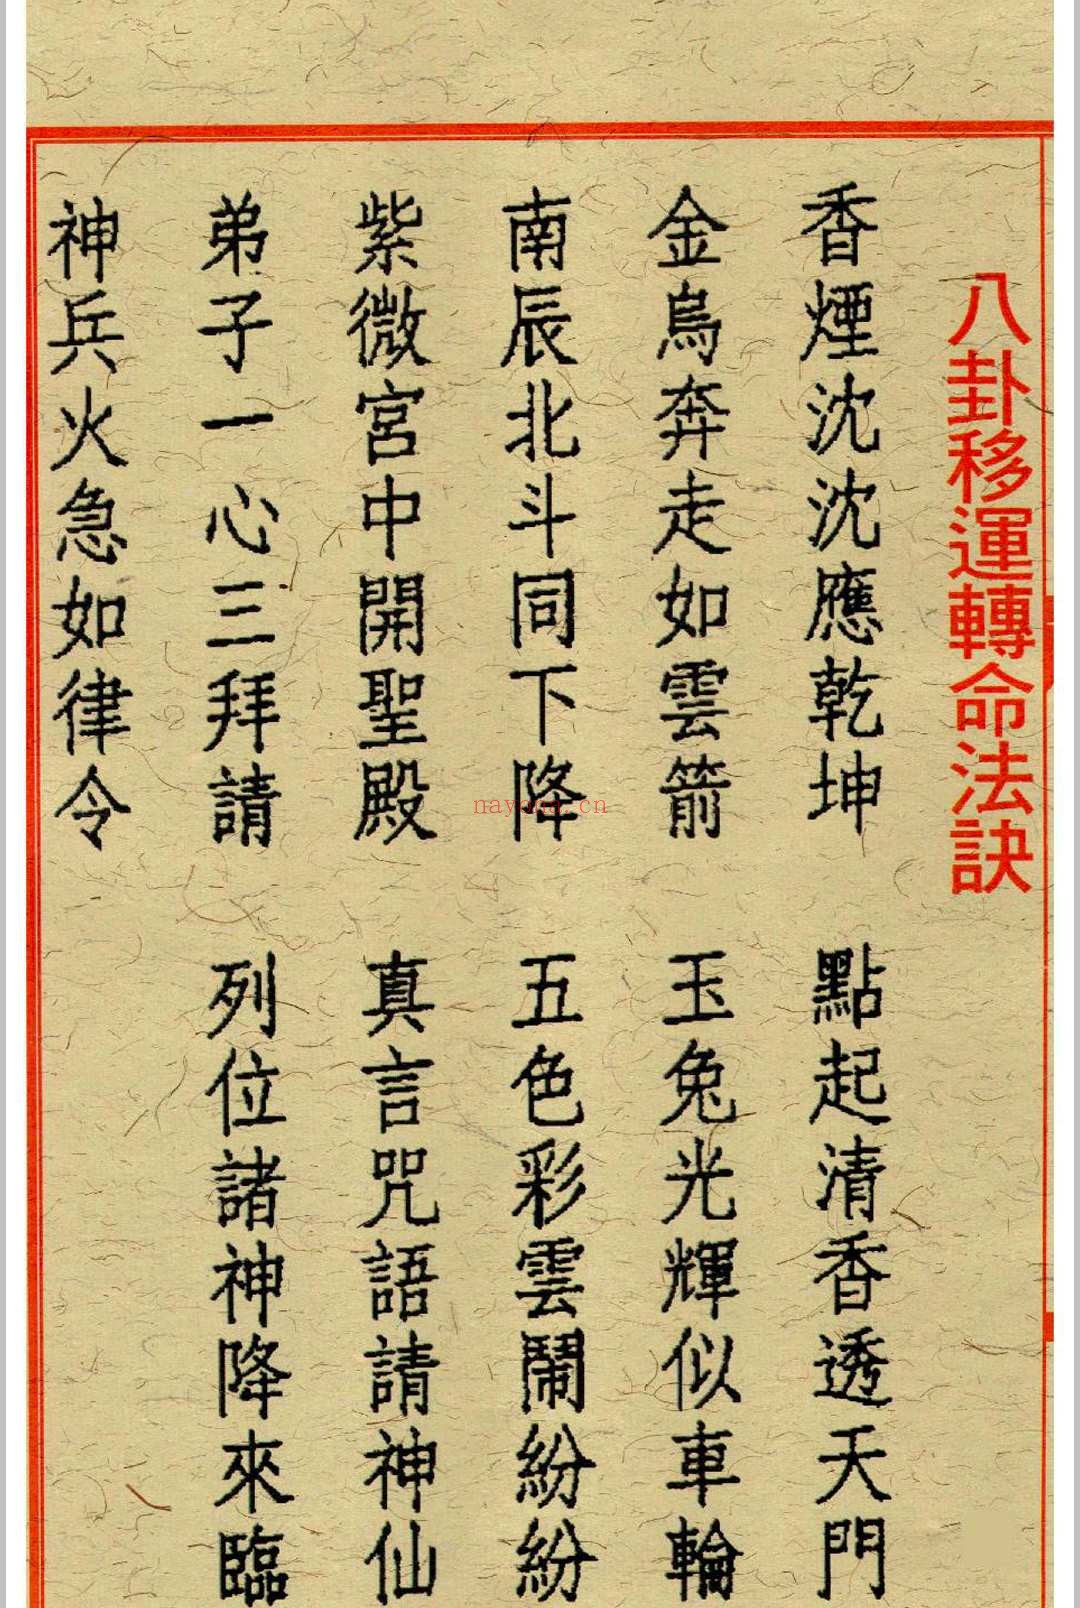 八卦移運轉命法訣
香煙沈沈應乾坤 點起清香透天門
金烏奔走如雲箭 玉兔光輝似車輪
南辰北斗同下降 五色彩雲鬧紛紛
紫微宮中開聖殿 真言咒語請神仙
弟子一心三拜請 列位諸神降來臨
神兵火急如律令